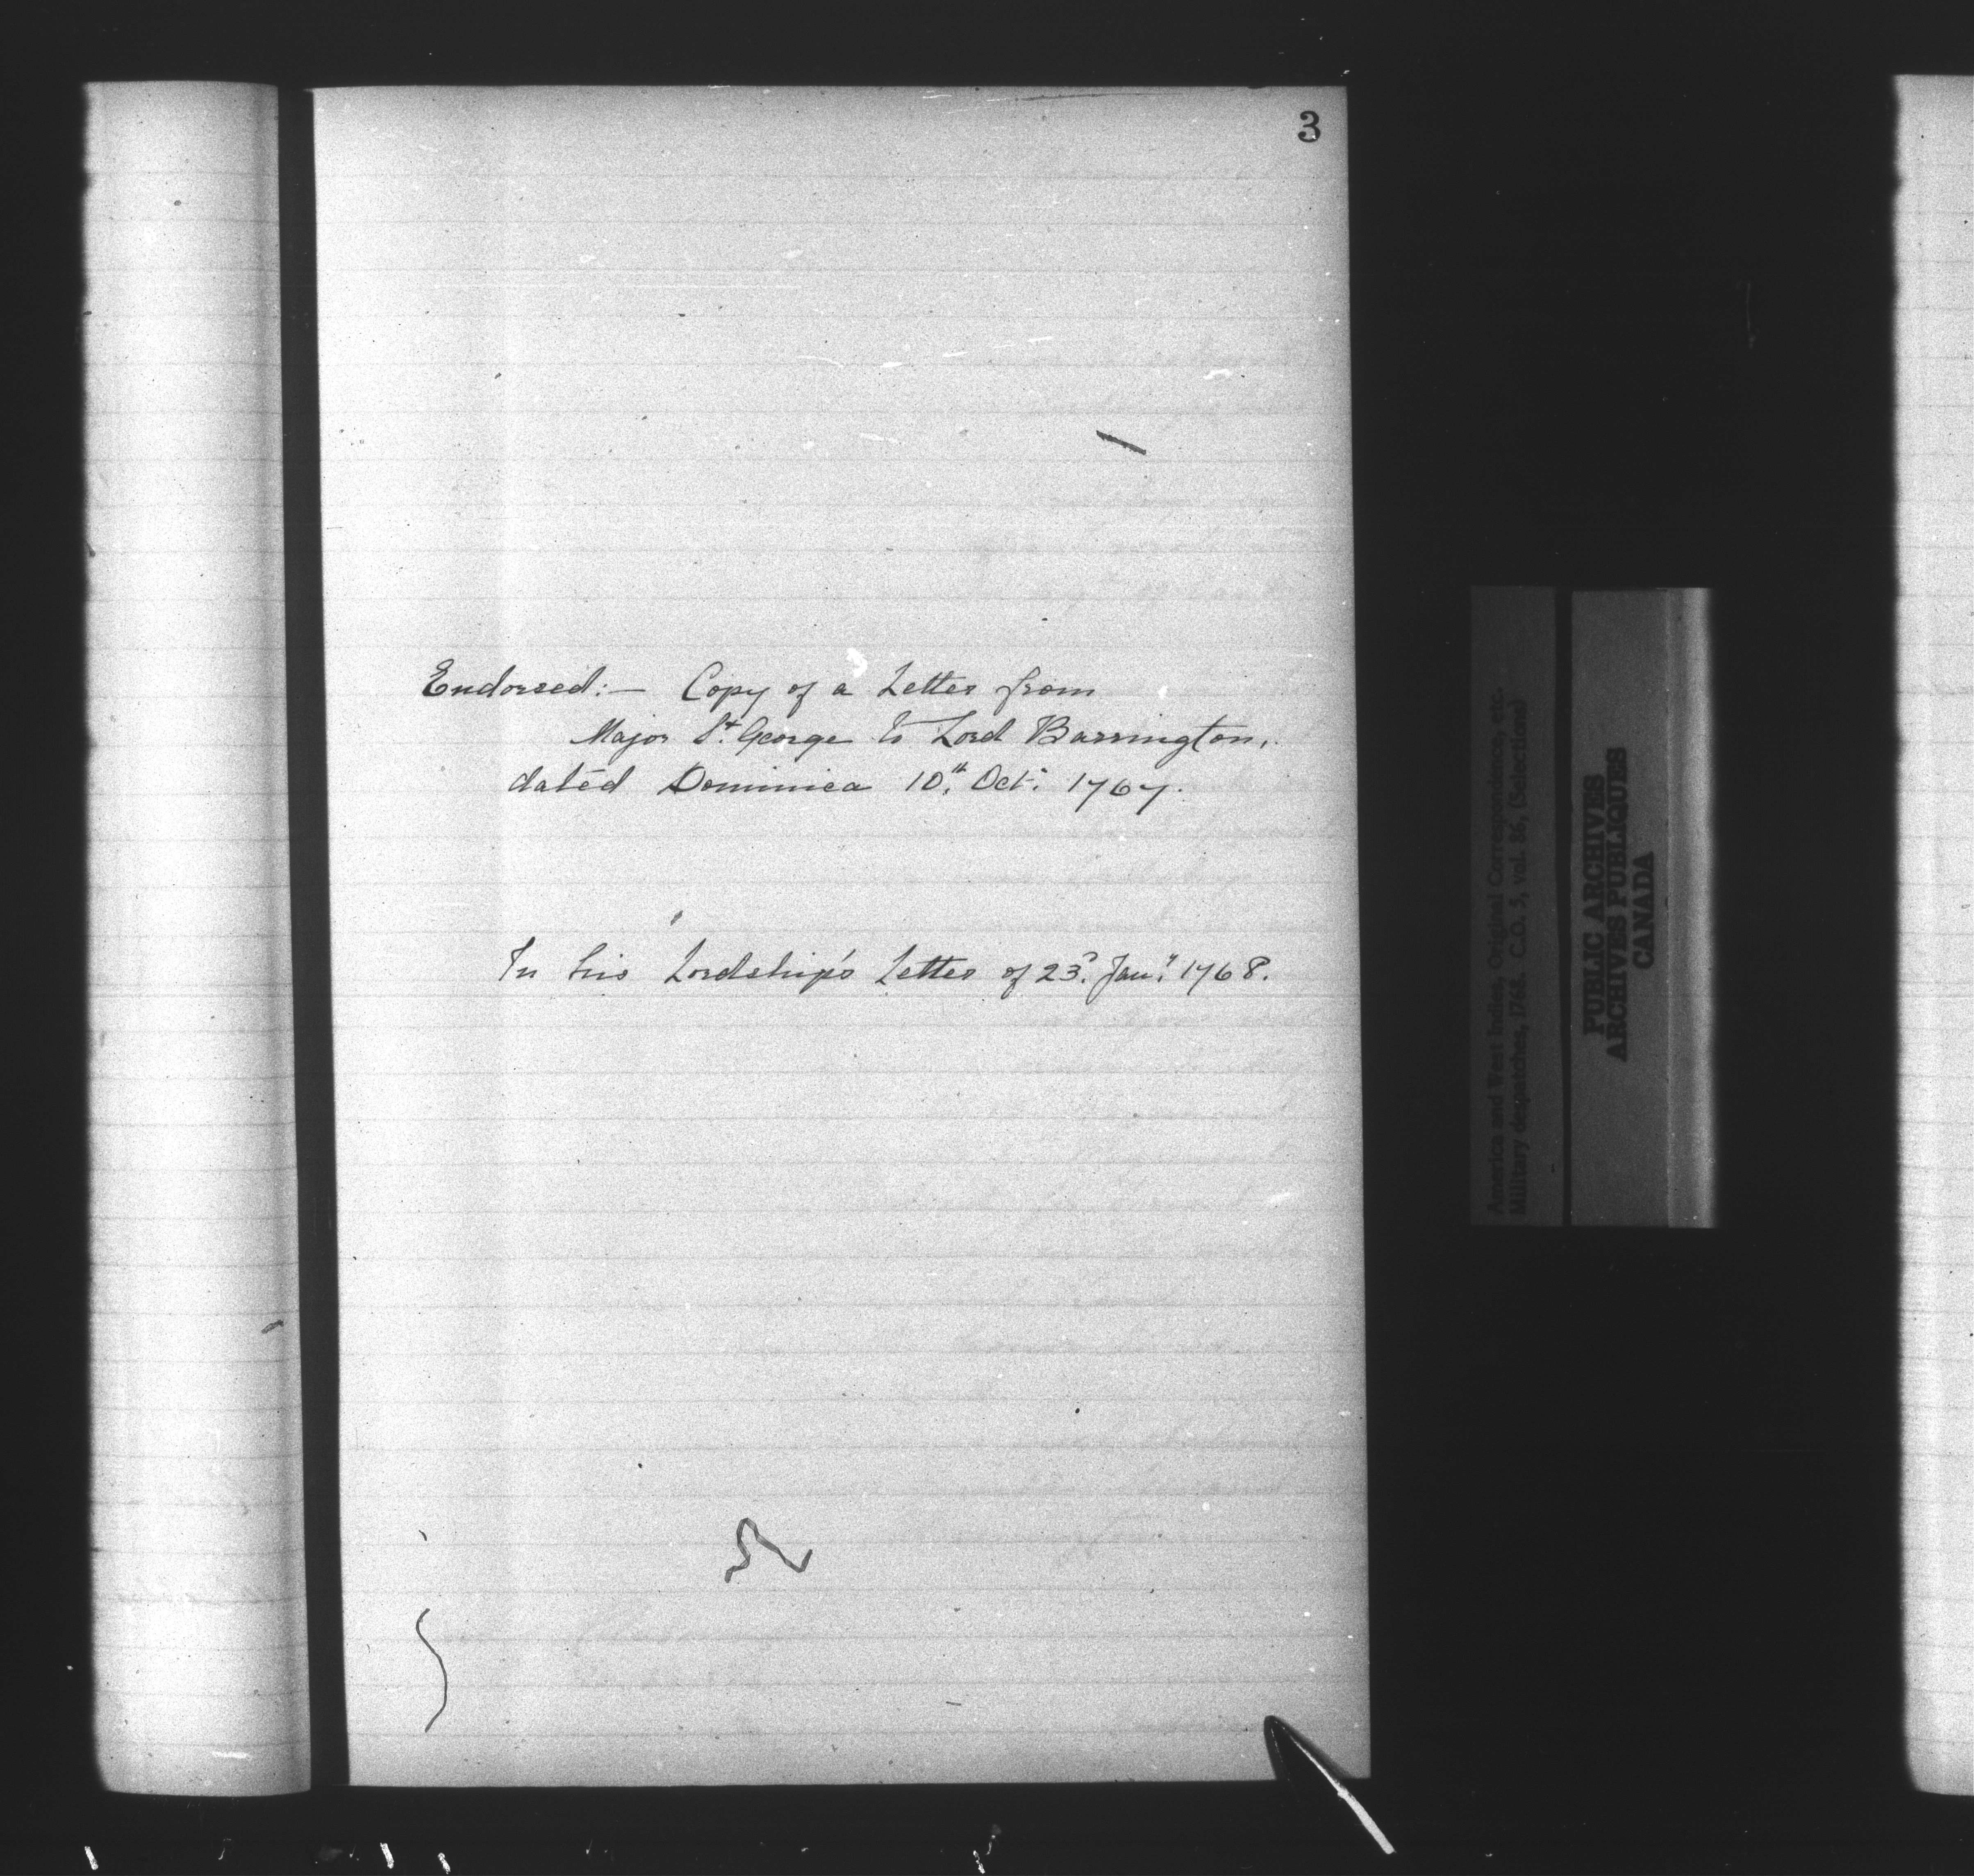 3
Endorsed:— Copy of a Letter from
Major St. George to Lord Barrington,
dated Dominica 10th. Oct: 1767.
In his Lordship's Letter of 23d. Jany. 1768.
America and West Indies, Original Correspondence, etc.
Military despatches, 1768. C.O. 5, vol. 86, (Selections)
PUBLIC ARCHIVES
ARCHIVES PUBLIQUES
CANADA